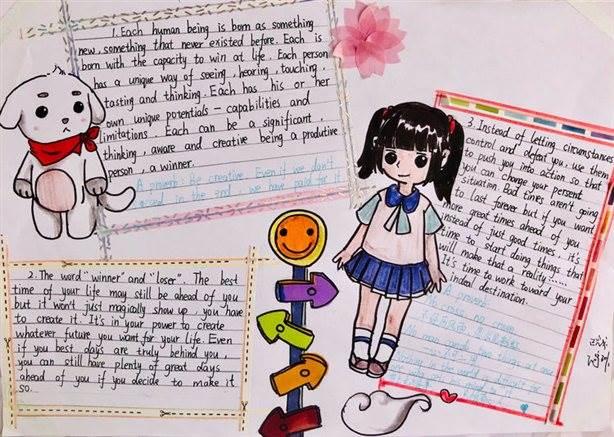 1. Each human being is born as something
new, something that never existed before. Each is
born with the capacity to win at life. Each person
has a unique way of seeing, hearing, touching,
tasting and thinking. Each has his or her
own unique potentials - capabilities and
limitations. Each can be a significant,
thinking, aware and creative being a produtive
person, a winner.
A proverb: Be creative. Even if we don't
in the end, we have paid for it
2. The word "winner" and "loser". The best
time of your life may still be ahead of you
but it won't just magically show up, you have
to create it. It's in your power to create
whatever future you want for your life. Even
if you best days are truly behind you,
you can still have plenty of great days
ahead of you if you decide to make it
so.
3. Instead of letting circumstance
control and defeat you, use them
to push you into action so that
you can change your persent
situation. Bad times aren't going
to last forever but if you want
more great times ahead of you
instead of just good times, it's
time to start doing things that
will make that a reality......
It's time to work toward your
indeal destination.